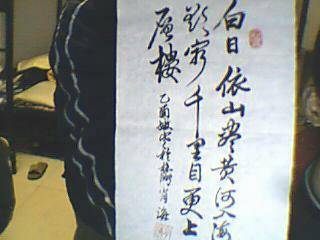 白日依山盡黄河入海
欲窮千里目更上
層樓
乙酉